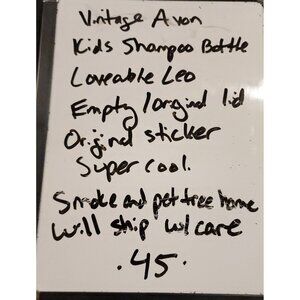 Vintage Avon
Kids Shampoo Bottle
Loveable Leo
Empty / orginal lid
Original sticker
Super cool.
Smoke and pet free home
Will ship w/ care
. 45 .